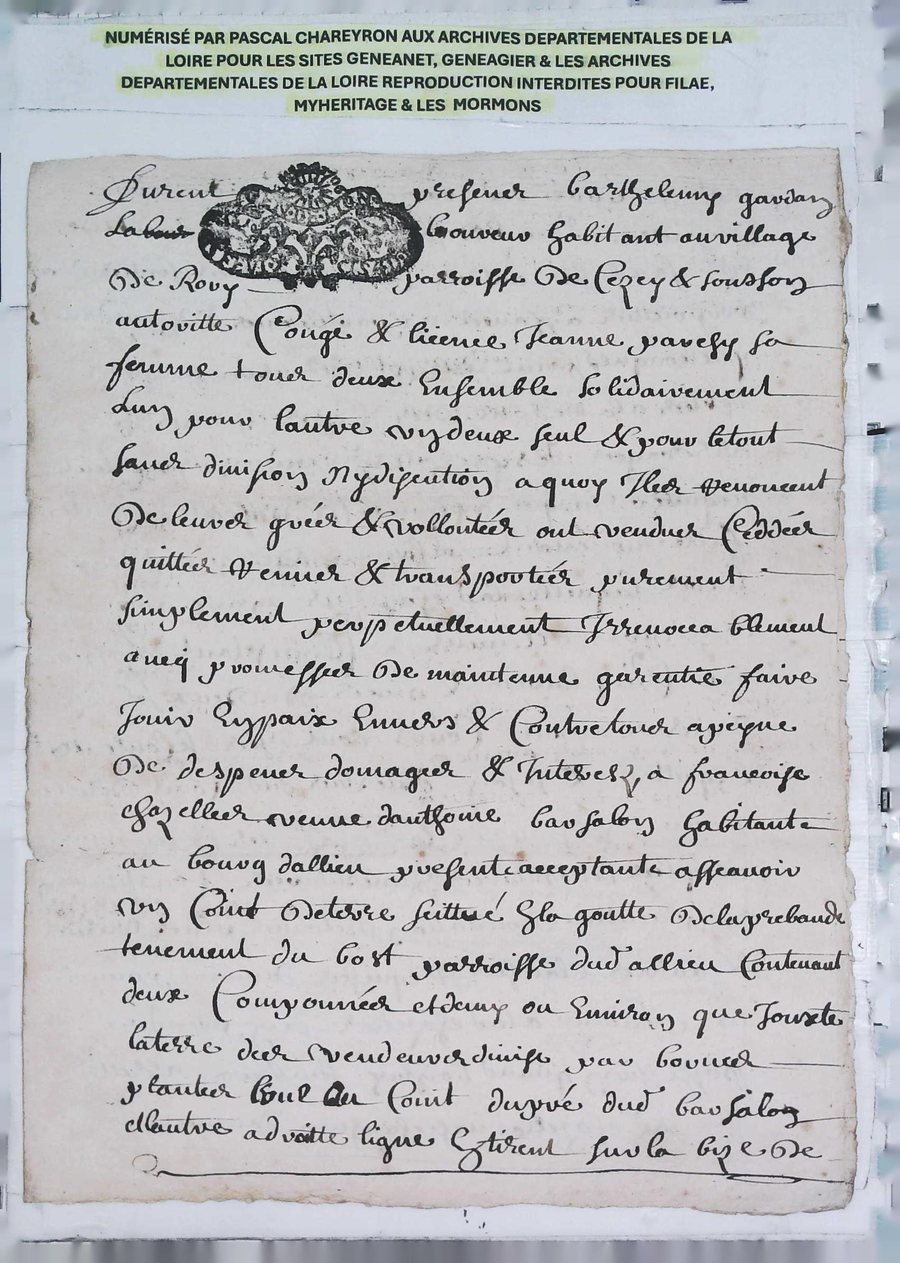 NUMÉRISÉ PAR PASCAL CHAREYRON AUX ARCHIVES DEPARTEMENTALES DE LA
LOIRE POUR LES SITES GENEANET, GENEAGIER & LES ARCHIVES
DEPARTEMENTALES DE LA LOIRE REPRODUCTION INTERDITES POUR FILAE,
MYHERITAGE & LES MORMONS
Furent presens barthelemy gardon
laboureur habitant au village
De Rory parroisse De Cezey & soubson
autoritte Congé & licence Jeanne parchy sa
femme tous deux Ensemble solidairement
Lun pour lautre un deux seul & pour letout
sans division Ny disention a quoy Ils renoncent
De leurs grées & vollontées ont vendus Ceddées
quittés remis & transportées purement
simplement perpetuellement Irrenocablement
aueq promesses De maintenue garentie faire
Jouir En paix Enuers & Contre tous a peyne
De despens domages & Interez, a francoise
chazelles veuue danthoine barsalon habitante
au bourg dallieu presente acceptante asscauoir
un Coint De terre scittué Ez la goutte Delaprebande
tenement du bost parroisse dud allieu Contenant
deux Couponnées et demy ou Enuiron que Jouxte
laterre des vendeurs diuise par bornes
plantés lune Au Coint du pré dud barsalon
& lautre a droitte ligne Et tirent sur la bize De